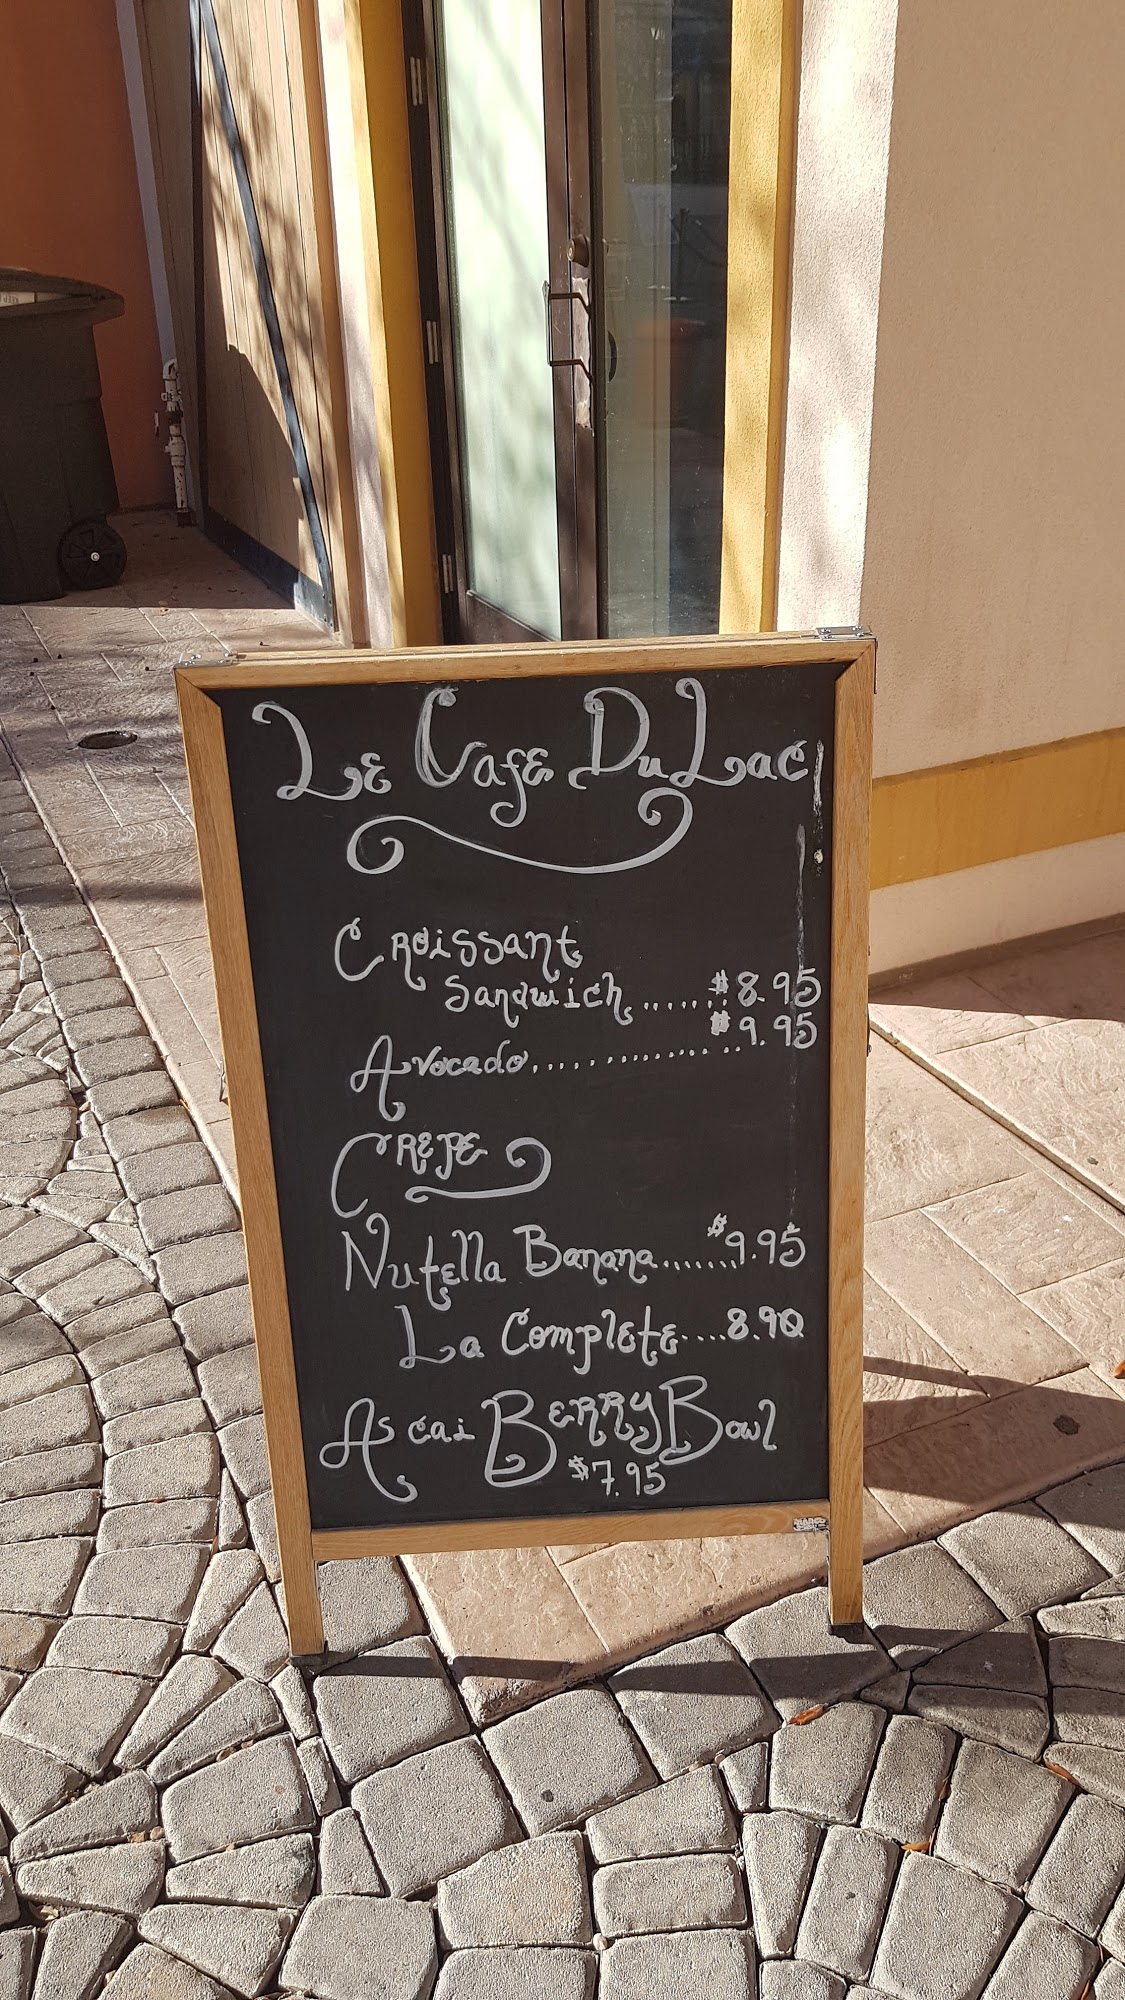 Le Cafe Du Lac
Croissant
Sandwich.......$8.95
Avocado................$9.95
Crepe
Nutella Banana.......$9.95
La Complete....8.90
Ascai Berry Bowl
$7.95